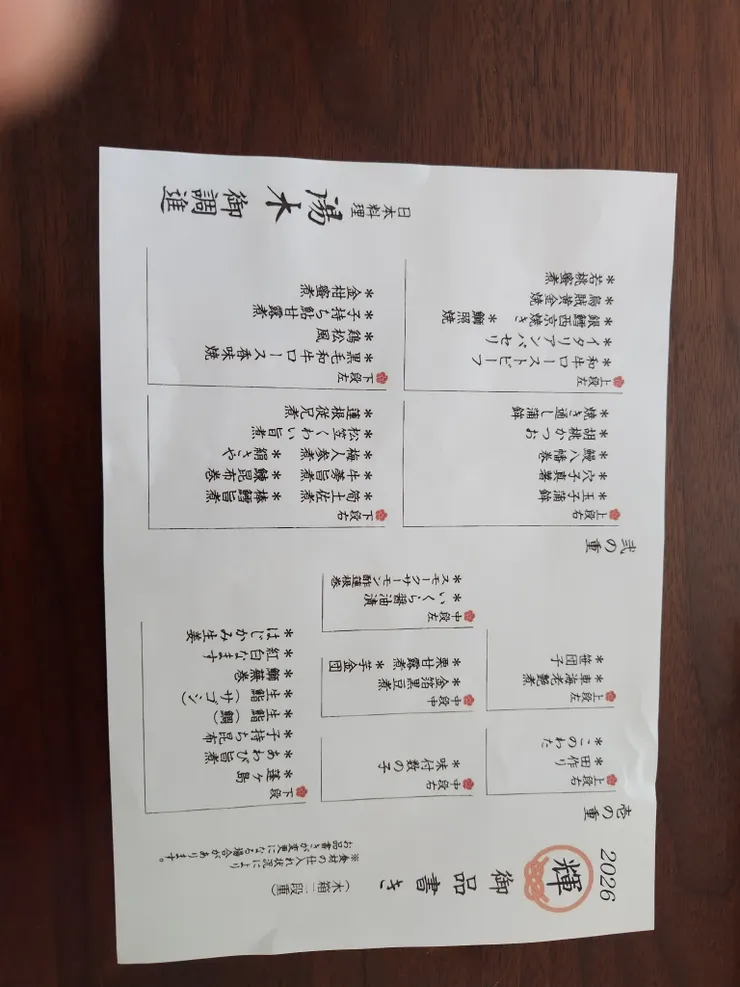 2026
輝
御品書き
(木箱 二段重)
※食材の仕入れ状況により
お品書きが変更になる場合があります。
壱の重
上段右
*田作り
*このわた
上段左
*車海老艶煮
*笹団子
中段右
*味付数の子
中段中
*金箔黒豆煮
*栗甘露煮 *芋金団
中段左
*いくら醤油漬
*スモークサーモン酢蓮根巻
下段
*蓬ヶ島
*あわび旨煮
*子持ち昆布
*生鮨(鯛)
*生鮨(サゴシ)
*鰤蕪巻
*紅白なます
*はじかみ生姜
弐の重
上段右
*玉子蒲鉾
*穴子真薯
*鰻八幡巻
*胡桃かつお
*焼き通し蒲鉾
上段左
*和牛ローストビーフ
*イタリアンパセリ
*銀鱈西京焼き *鰤照焼
*烏賊黄金焼
*若桃蜜煮
下段右
*筍土佐煮 *棒鱈旨煮
*牛蒡旨煮 *鰊昆布巻
*梅人参煮 *絹さや
*松笠くわい旨煮
*蓮根従兄煮
下段左
*黒毛和牛ロース香味焼
*鶏松風
*子持ち鮎甘露煮
*金柑蜜煮
日本料理 湯木 御調進